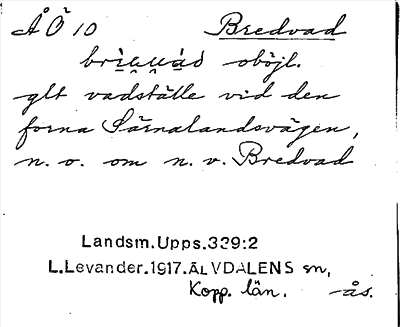 ÅÖ 10 Bredvad
oböjl.
glt vadställe vid den
forna Särnalandsvägen,
n. o. om n. v. Bredvad
Landsm.Upps.339:2
L.Levander.1917.ÄLVDALENS sn,
Kopp. län. -ås.